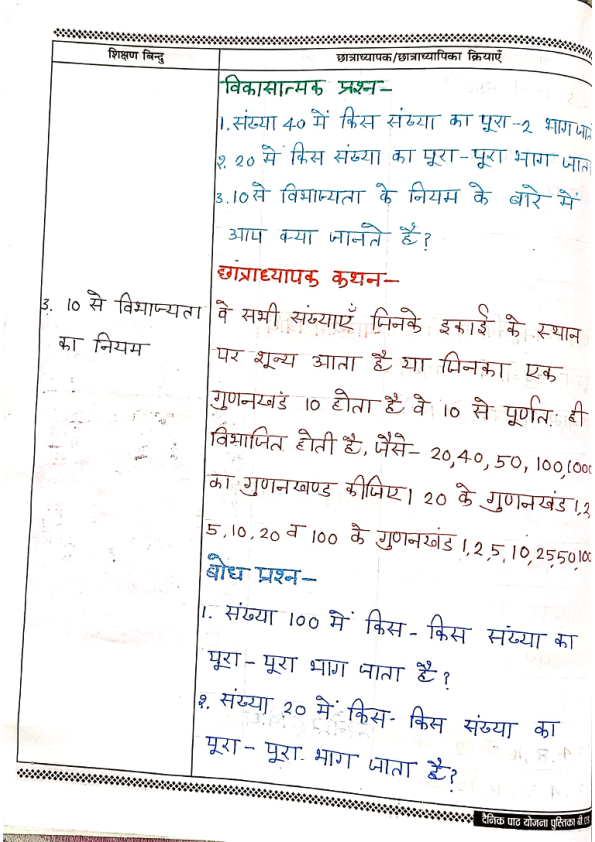 शिक्षण बिन्दु
छात्राध्यापक/छात्राध्यापिका क्रियाएँ
विकासात्मक प्रश्न–
1. संख्या 40 में किस संख्या का पूरा-२ भाग जाता
२. 20 में किस संख्या का पूरा-पूरा भाग जाता
3. 10 से विभाज्यता के नियम के बारे में
आप क्या जानते है?
छात्राध्यापक कथन–
3. 10 से विभाज्यता
का नियम
वे सभी संख्याएँ जिनके इकाई के स्थान
पर शून्य आता है या जिनका एक
गुणनखंड 10 होता है वे 10 से पूर्णत: ही
विभाजित होती है, जैसे– 20, 40, 50, 100, 1000
का गुणनखण्ड कीजिए। 20 के गुणनखंड 1, 2
5, 10, 20 व 100 के गुणनखंड 1, 2, 5, 10, 25, 50, 100
बोध प्रश्न–
1. संख्या 100 में किस - किस संख्या का
पूरा - पूरा भाग जाता है?
२. संख्या 20 में किस - किस संख्या का
पूरा - पूरा भाग जाता है?
दैनिक पाठ योजना पुस्तिका बी.एड